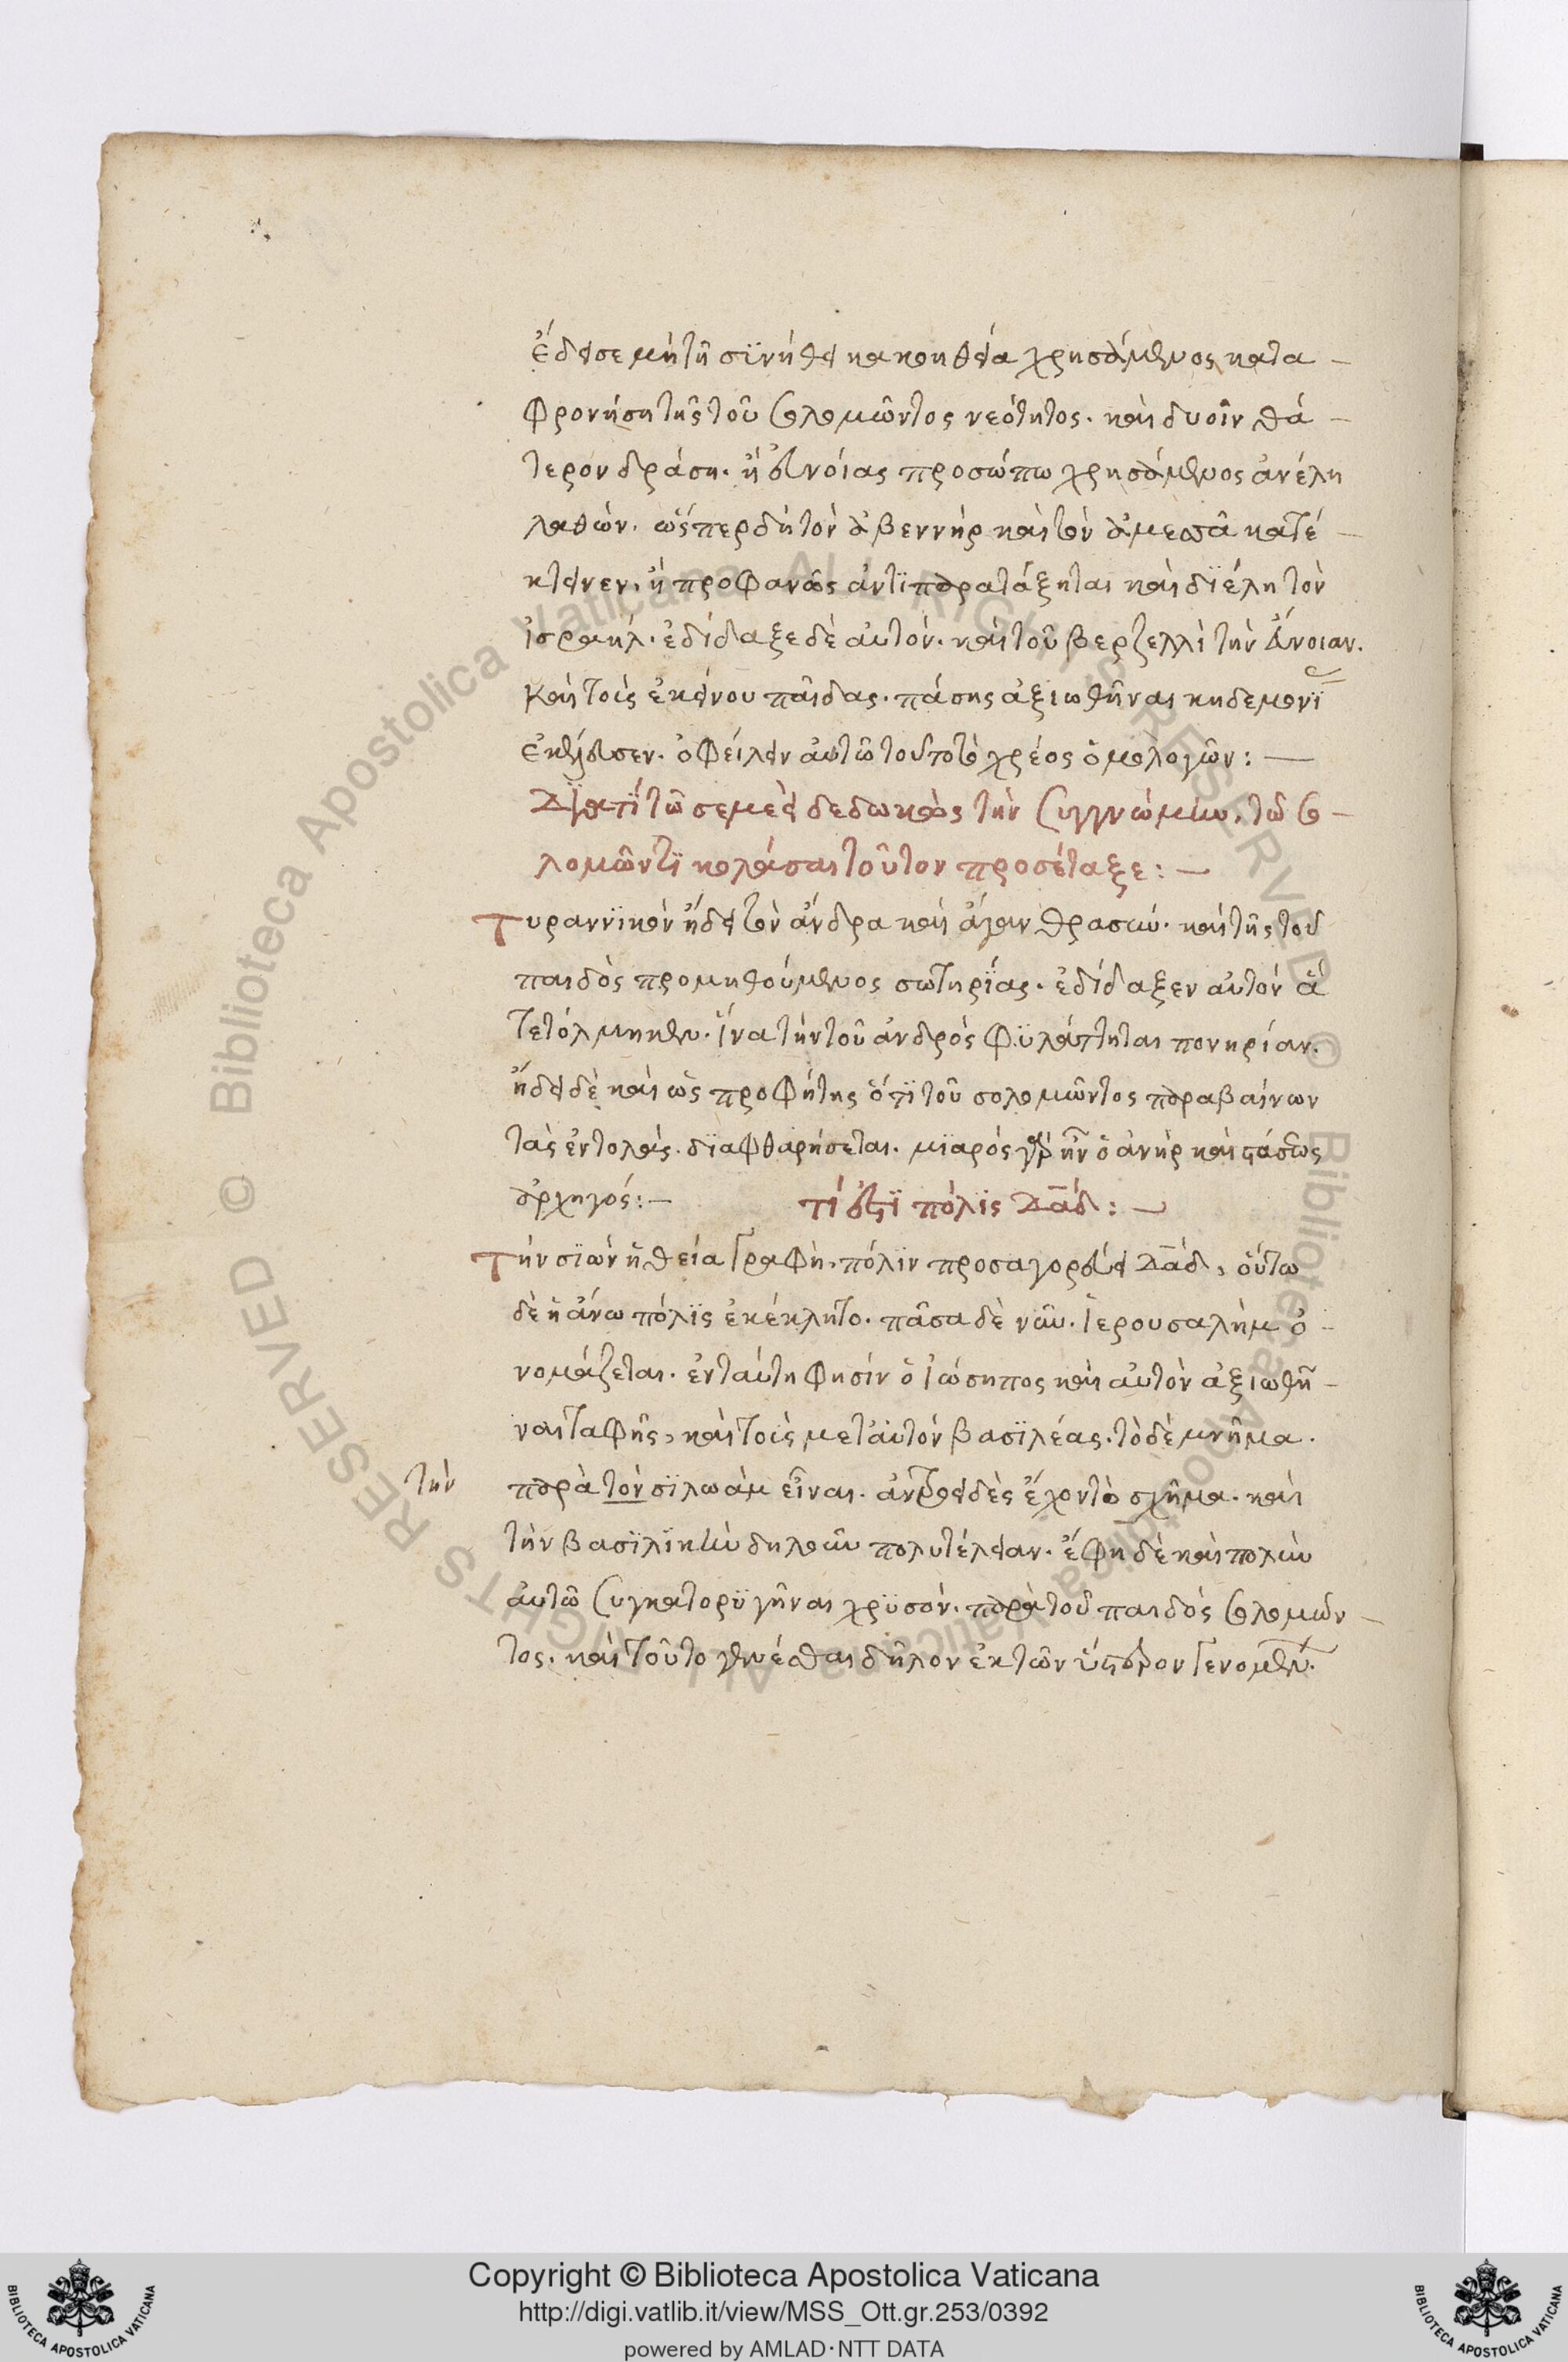 ἔδεισε μὴ τῆ σϊνήθει κακοηθεία χρησάμενος κατα-
φρονήση τῆς τοῦ σολομῶντος νεότητος. καὶ δυοῖν θά-
τερον δράση. ἢ εὐνοίας προσώπω χρησάμενος ἀνέλη
λαθών. ὥσπερ δὴ τὸν ἀβεννὴρ καὶ τὸν ἀμεσσᾶ κατέ-
κτεινεν, ἢ προφανῶς ἀντϊπαρατάξηται καὶ δϊέλη τὸν
ἰσραήλ. ἐδίδαξε δὲ αὐτὸν. καὶ τοῦ βερζελλὶ τὴν εὔνοιαν.
καὶ τοὺς ἐκείνου παῖδας. πάσης ἀξιωθῆναι κηδεμονΐας
ἐκέλευσεν. ὀφείλειν αὐτῶ τουτοτὸ χρέος ὁμολογῶν: —
Δϊατΐ τῶ σεμεεὶ δεδωκὼς τὴν συγγνώμην, τῶ σο-
λομῶντϊ κολάσαι τοῦτον προσέταξε: —
Τυραννϊκὸν ἤδει τὸν ἄνδρα καὶ ἄγαν θρασύν. καὶ τῆς τοῦ
παιδὸς προμηθούμενος σωτηρΐας. ἐδίδαξεν αὐτὸν ἃ
τετόλμηκεν. ἵνα τὴν τοῦ ἀνδρὸς φϋλάττηται πονηρίαν.
ἤδει δὲ καὶ ὡς προφήτης ὅτϊ τοῦ σολομῶντος παραβαίνων
τὰς ἐντολὰς. δϊαφθαρήσεται. μϊαρὸς γὰρ ἦν ὁ ἀνὴρ καὶ στάσεως
ἀρχηγός: — τί ἐστϊ πόλϊς Δᾱδ: —
Τὴν σϊὼν ἡ θεία γραφὴ, πόλϊν προσαγορεύει Δᾱδ, οὕτω
δὲ ἡ ἄνω πόλϊς ἐκέκλητο. πᾶσα δὲ νῦν. ἱερουσαλὴμ ὀ-
νομάζεται. ἐν ταύτη φησὶν ὁ ἰώσηπος καὶ αὐτὸν ἀξιωθῆ-
ναι ταφῆς, καὶ τοὺς μετ' αὐτὸν βασϊλέας. τὸ δὲ μνῆμα.
τὴν παρὰ τὸν σϊλωὰμ εἶναι. ἀντροειδὲς ἔχον τὸ σχῆμα. καὶ
τὴν βασϊλϊκὴν δηλοῦν πολυτέλειαν. ἔφη δὲ καὶ πολὺν
αὐτῶ συγκατορϋγῆναι χρϋσόν. παρὰ τοῦ παιδὸς σολομῶν-
τος. καὶ τοῦτο γενέσθαι δῆλον ἐκ τῶν ὕστερον γενομένων.
Copyright © Biblioteca Apostolica Vaticana
http://digi.vatlib.it/view/MSS_Ott.gr.253/0392
powered by AMLAD·NTT DATA